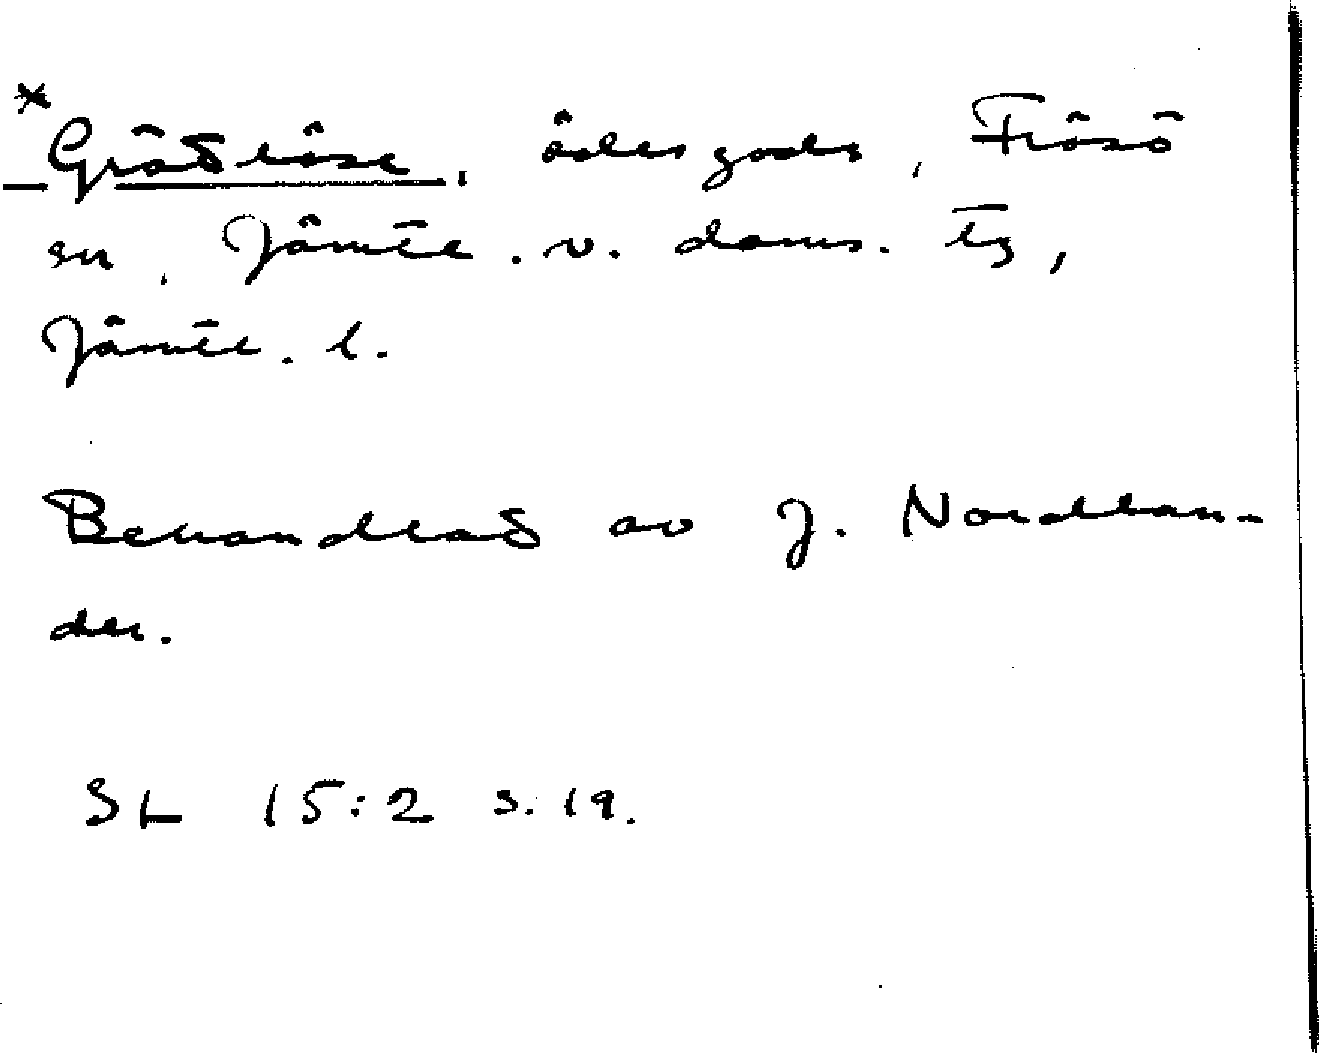 *Grädröse, ödesgods, Frösö
sn, Jämtl. v. doms. tg,
Jämtl. l.
Behandlad av J. Nordlan-
der.
SL 15:2 s. 19.